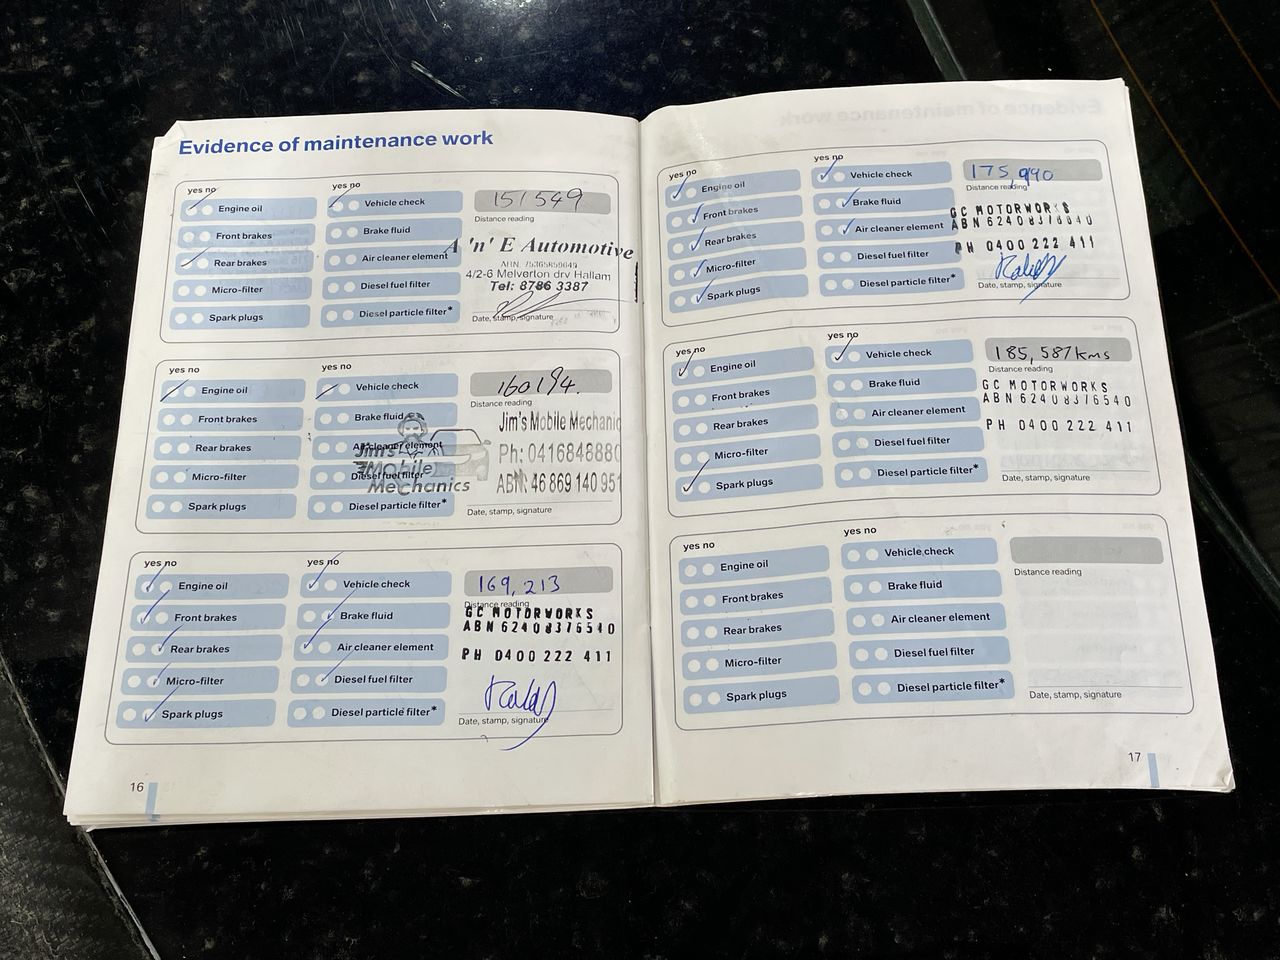 Evidence of maintenance work
yes no
yes no
Engine oil
Vehicle check
151549
Distance reading
Front brakes
Brake fluid
Rear brakes
Air cleaner element
A 'n' E Automotive
Micro-filter
Diesel fuel filter
4/2-6 Melverton drv Hallam
Tel: 8786 3387
Spark plugs
Diesel particle filter*
Date, stamp, signature
yes no
yes no
Engine oil
Vehicle check
160194.
Distance reading
Front brakes
Brake fluid
Jim's Mobile Mechanic
Rear brakes
Air cleaner element
Jim's
Mobile
Mechanics
Ph: 0416848880
Micro-filter
Diesel fuel filter
ABN: 46 869 140 951
Spark plugs
Diesel particle filter*
Date, stamp, signature
yes no
yes no
Engine oil
Vehicle check
169,213
Distance reading
Front brakes
Brake fluid
GC MOTORWORKS
ABN 62408376540
Rear brakes
Air cleaner element
PH 0400 222 411
Micro-filter
Diesel fuel filter
Spark plugs
Diesel particle filter*
Date, stamp, signature
16
yes no
yes no
Engine oil
Vehicle check
175,990
Distance reading
Front brakes
Brake fluid
GC MOTORWORKS
Rear brakes
Air cleaner element
PH 0400 222 411
Micro-filter
Diesel fuel filter
Spark plugs
Diesel particle filter*
Date, stamp, signature
yes no
yes no
Engine oil
Vehicle check
185,587kms
Distance reading
Front brakes
Brake fluid
GC MOTORWORKS
ABN 62408376540
Rear brakes
Air cleaner element
PH 0400 222 411
Micro-filter
Diesel fuel filter
Spark plugs
Diesel particle filter*
Date, stamp, signature
yes no
yes no
Engine oil
Vehicle check
Distance reading
Front brakes
Brake fluid
Rear brakes
Air cleaner element
Micro-filter
Diesel fuel filter
Spark plugs
Diesel particle filter*
Date, stamp, signature
17